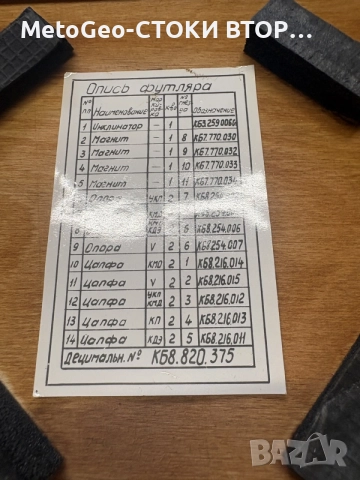 MetoGeo-СТОКИ ВТОР...
Опись футляра
№ п.п. Наименование Мар ки ров ка К-во № гнезда Обозначение
1 Инклинатор - 1 КБ3.259.006
2 Магнит - 1 8 КБ7.770.030
3 Магнит - 1 9 КБ7.770.032
4 Магнит - 1 10 КБ7.770.033
5 Магнит - 1 11 КБ7.770.034
Опора УКП 2 7 КБ8.254
8 КДЭ 5 КБ8.254.006
9 Опора V 2 6 КБ8.254.007
10 Цапфа КМО 2 1 КБ8.216.014
11 Цапфа V 2 2 КБ8.216.015
12 Цапфа УКП КМД 2 3 КБ8.216.012
13 Цапфа КП 2 4 КБ8.216.013
14 Цапфа КДЭ 2 5 КБ8.216.011
Децимальн. № КБ8.820.375
BAZAR
bg